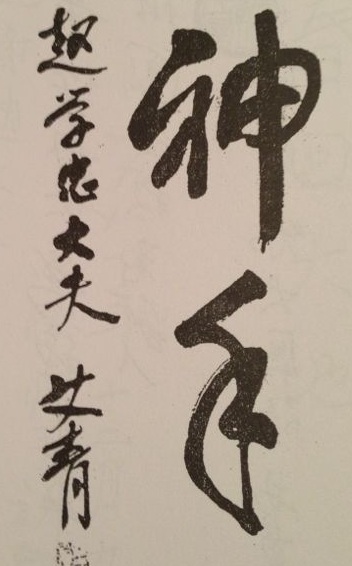 神手
赵学忠大夫 艾青